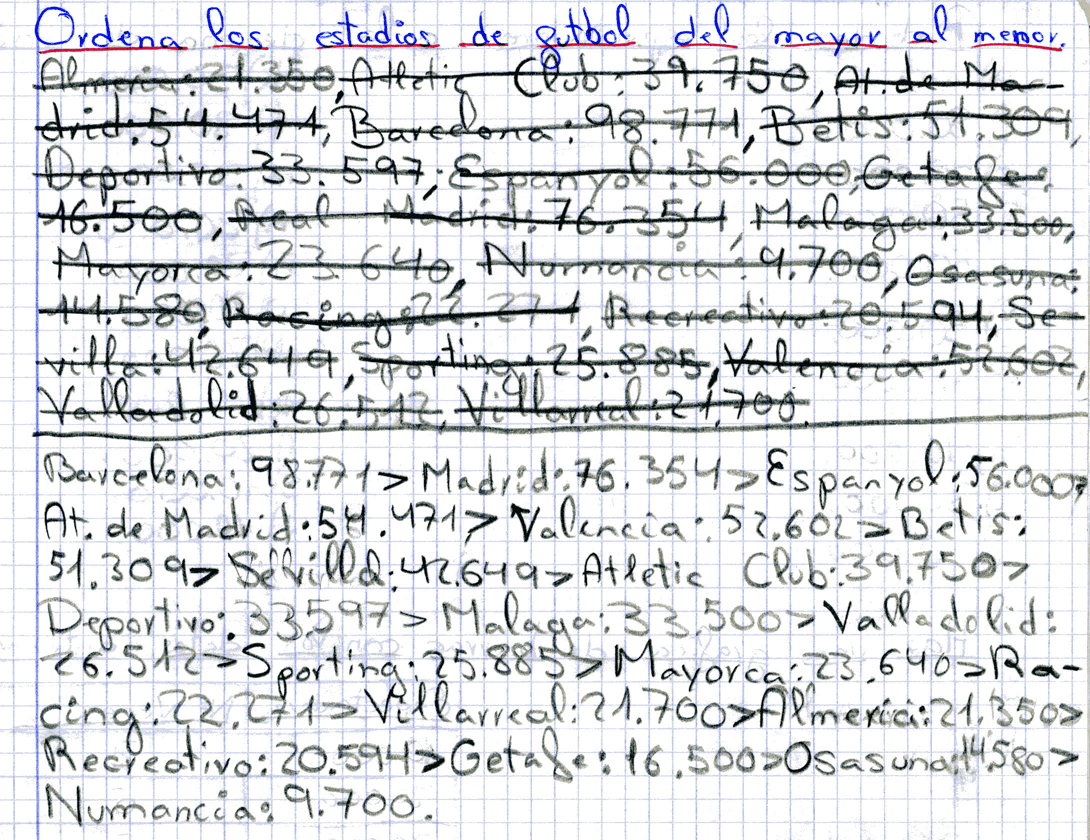 Ordena los estadios de futbol del mayor al menor.
Almeria: 21.350, Atletic Club: 39.750, At. de Ma-
drid: 54.471, Barcelona: 98.771, Betis: 51.309,
Deportivo: 33.597, Espanyol: 56.000, Getafe:
16.500, Real Madrid: 76.354, Malaga: 33.500,
Mayorca: 23.640, Numancia: 9.700, Osasuna:
14.580, Racing: 22.271, Recreativo: 20.594, Se-
villa: 42.649, Sporting: 25.885, Valencia: 52.602,
Valladolid: 26.512, Villarreal: 21.700.
Barcelona: 98.771> Madrid: 76.354> Espanyol: 56.000>
At. de Madrid: 54.471> Valencia: 52.602> Betis:
51.309> Sevilla: 42.649> Atletic Club: 39.750>
Deportivo: 33.597> Malaga: 33.500> Valladolid:
26.512> Sporting: 25.885> Mayorca: 23.640> Ra-
cing: 22.271> Villarreal: 21.700> Almeria: 21.350>
Recreativo: 20.594> Getafe: 16.500> Osasuna: 14.580>
Numancia: 9.700.